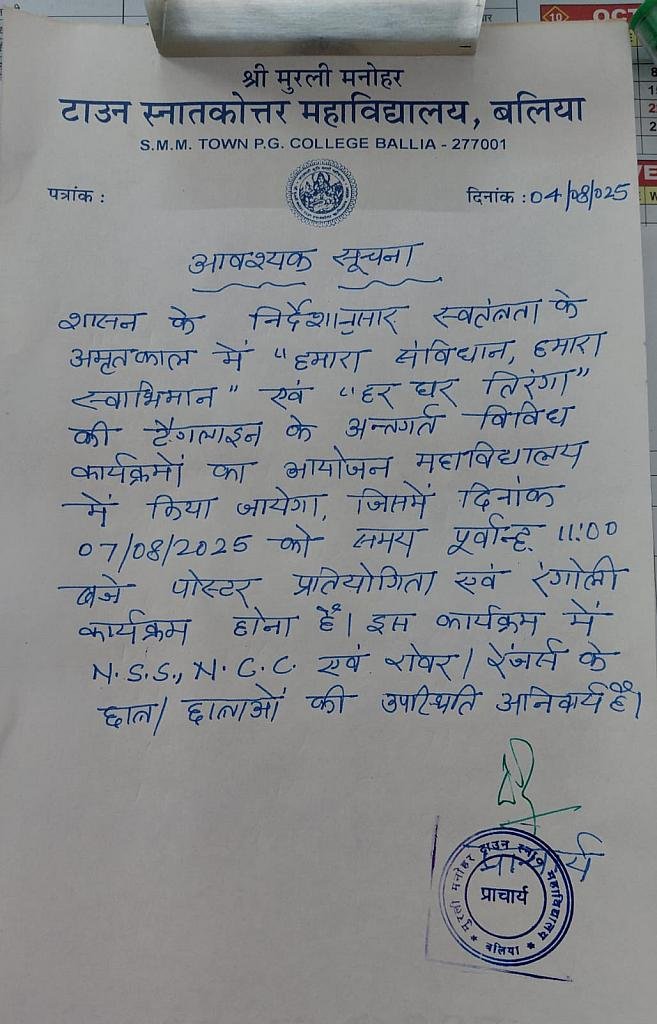 श्री मुरली मनोहर
टाउन स्नातकोत्तर महाविद्यालय, बलिया
S.M.M. TOWN P.G. COLLEGE BALLIA - 277001
पत्रांक :
दिनांक : 04/08/025
आवश्यक सूचना
शासन के निर्देशानुसार स्वतंत्रता के
अमृतकाल में "हमारा संविधान, हमारा
स्वाभिमान" एवं "हर घर तिरंगा"
की टैगलाइन के अन्तर्गत विविध
कार्यक्रमों का आयोजन महाविद्यालय
में किया जायेगा, जिसमें दिनांक
07/08/2025 को समय पूर्वान्ह 11:00
बजे पोस्टर प्रतियोगिता एवं रंगोली
कार्यक्रम होना है। इस कार्यक्रम में
N.S.S., N.C.C. एवं रोवर/ रेंजर्स के
छात्र/ छात्राओं की उपस्थिति अनिवार्य है।
प्राचार्य
मुरली मनोहर टाउन स्ना० महाविद्यालय
प्राचार्य
* बलिया *